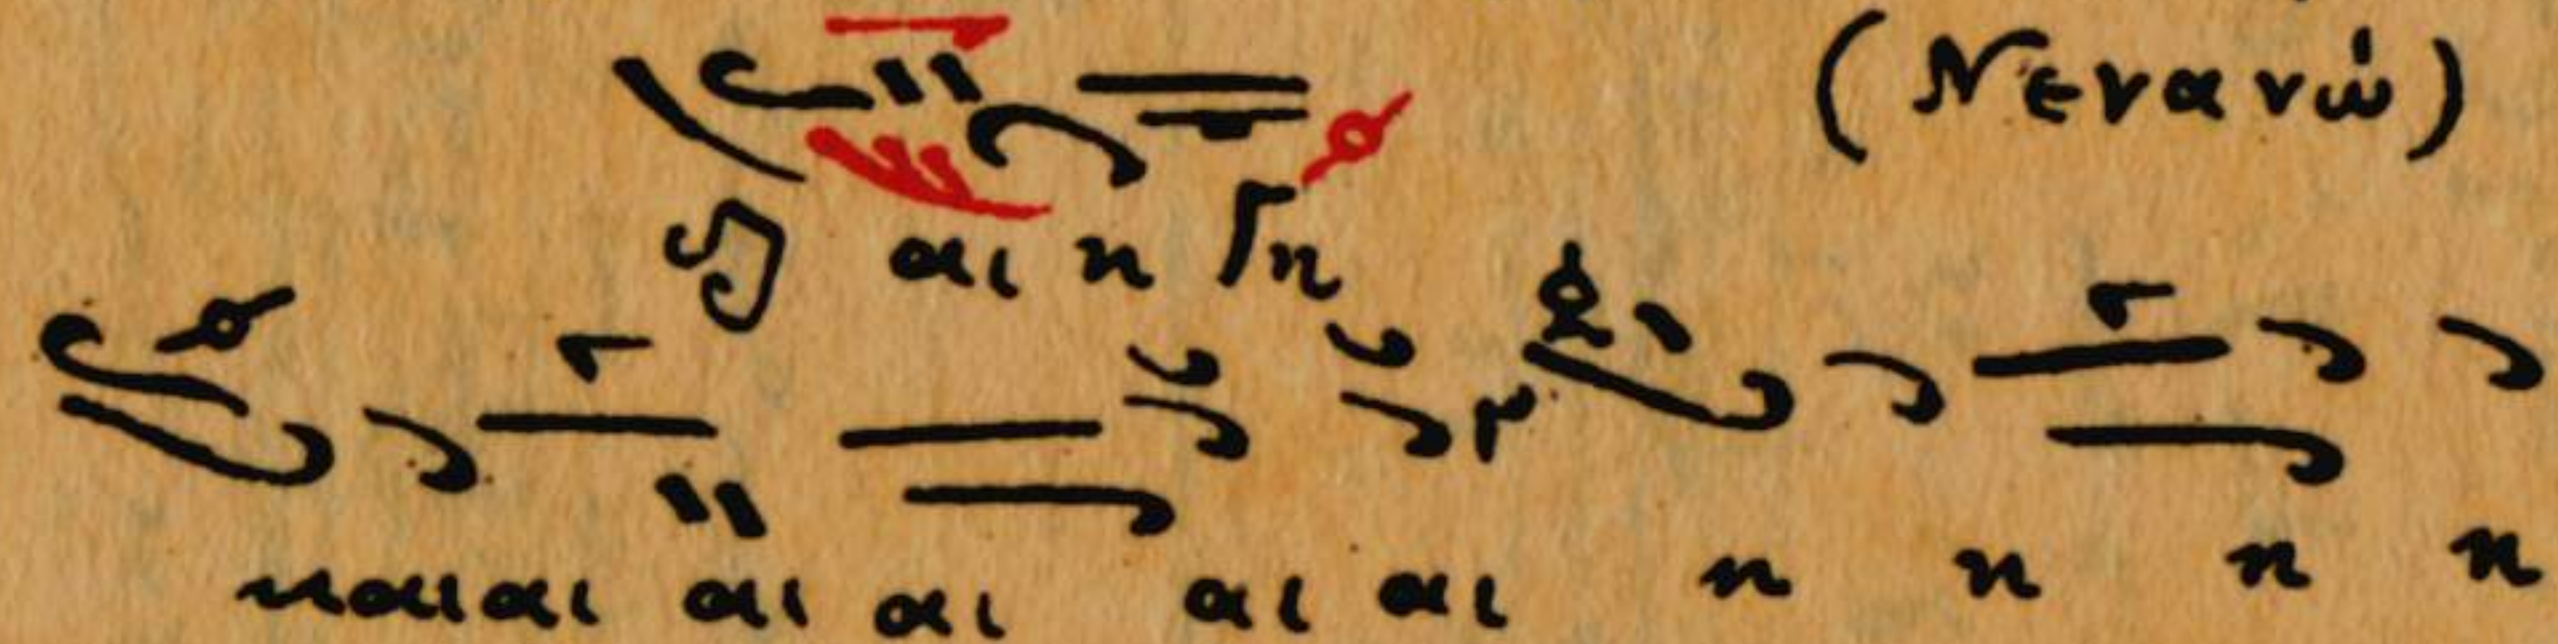 (Νενανώ)
αι η η
ναιαι αι αι αι αι η η η η